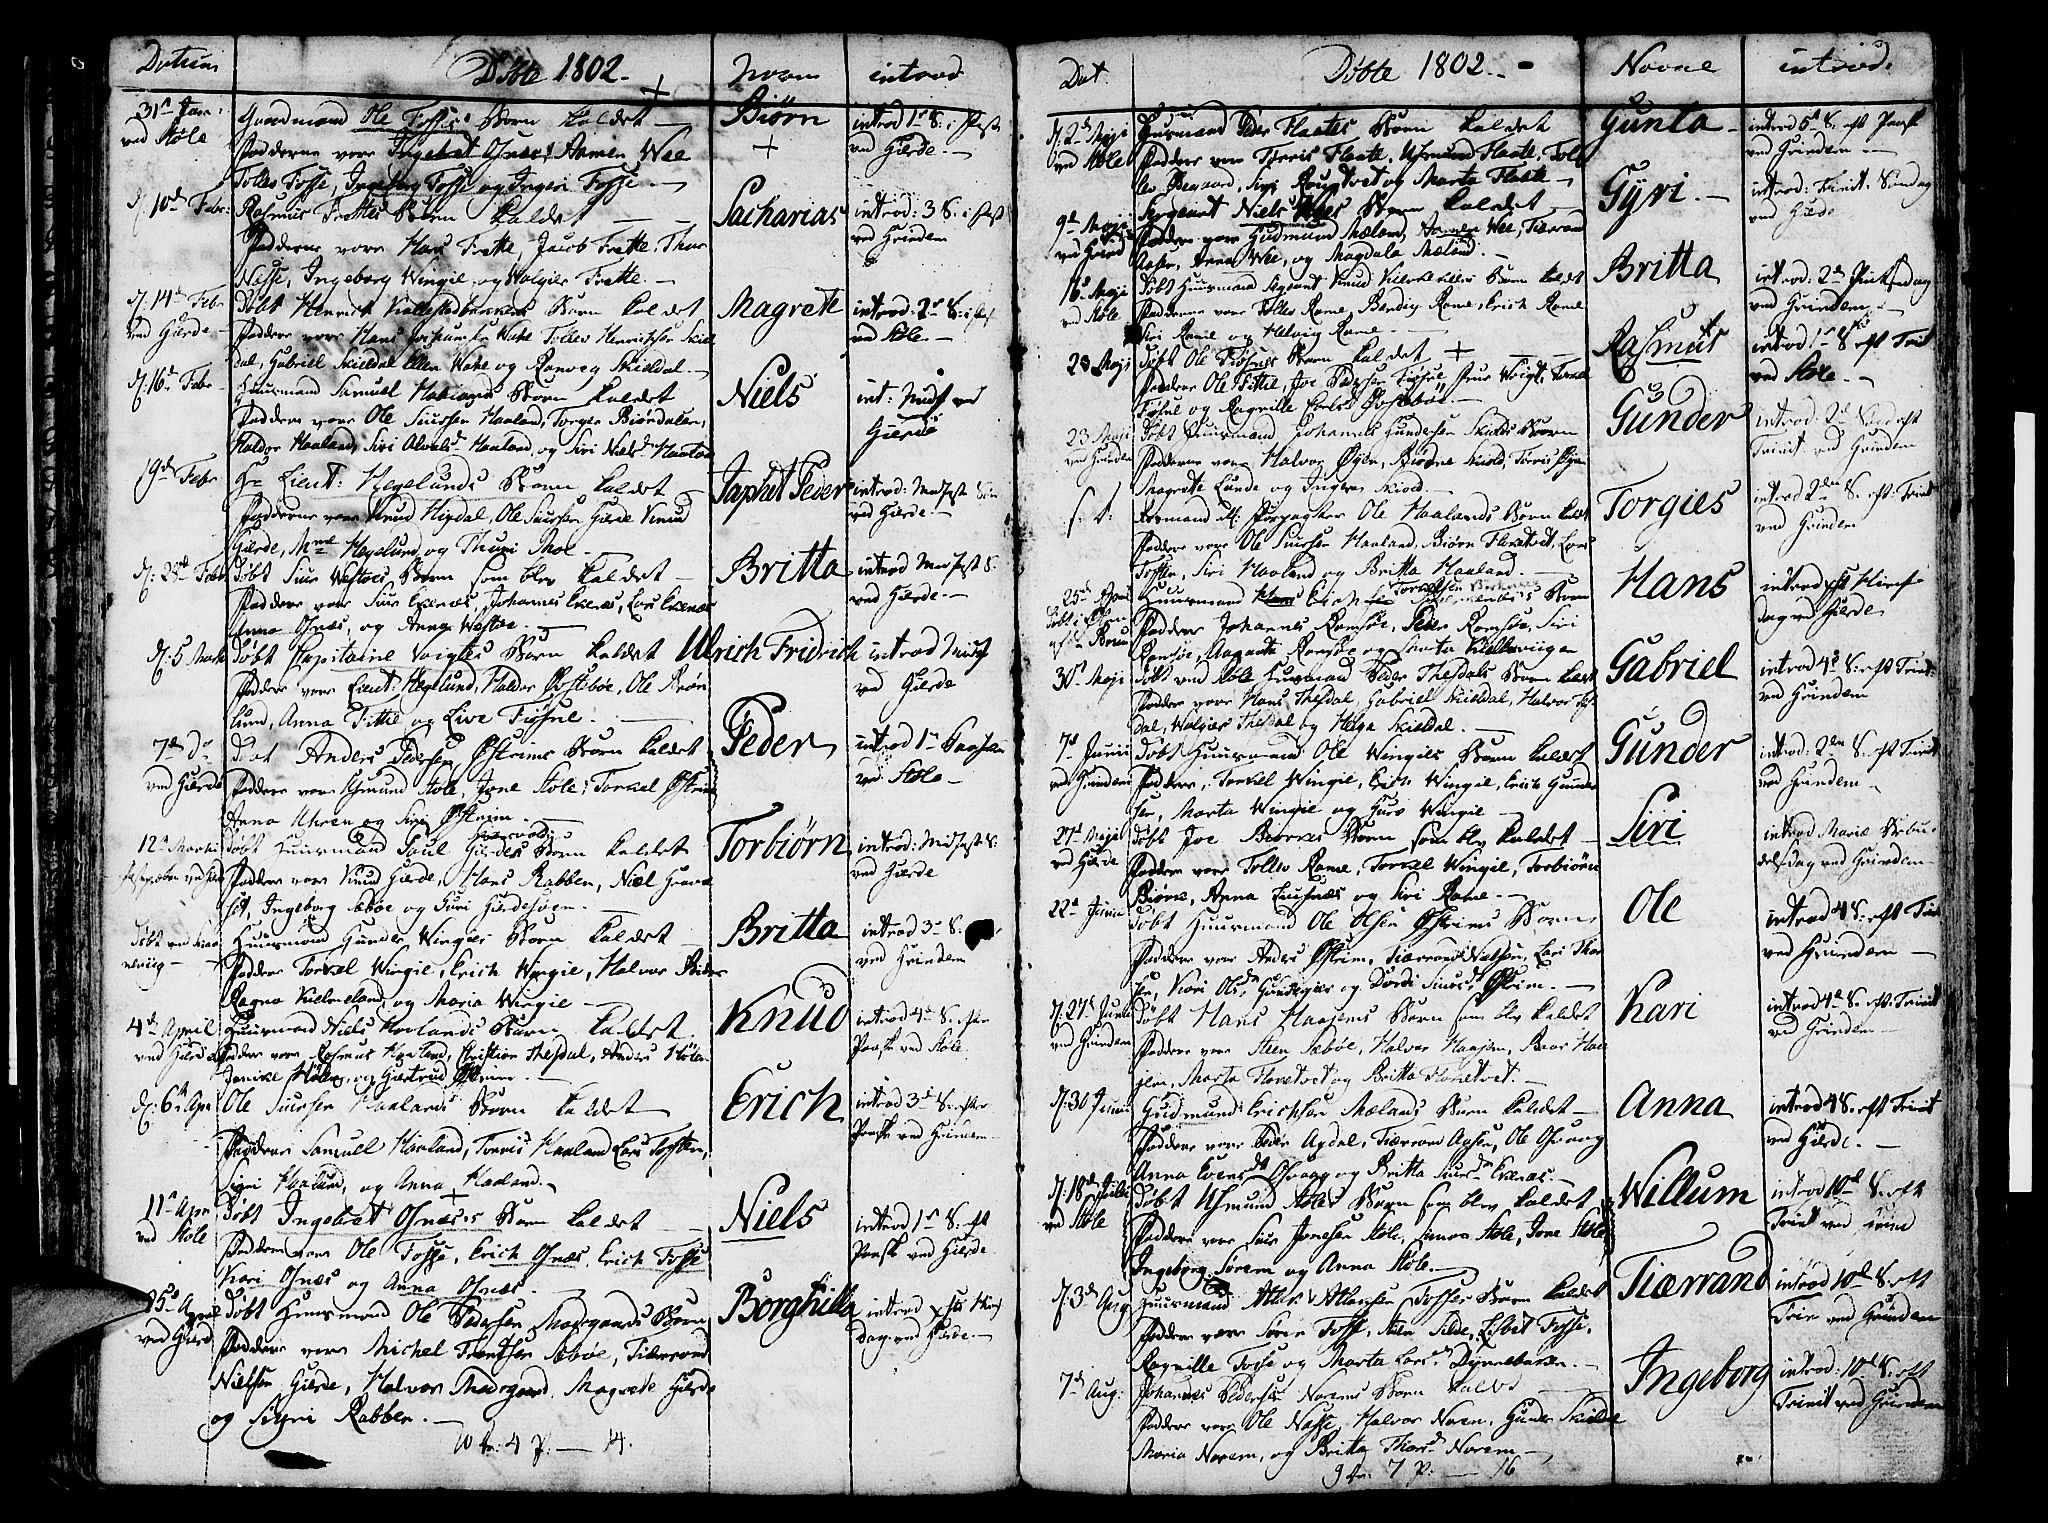 Datum
Døbte 1802.
Navn
introd
31te Jan:
ved Stole
Gaardmand Ole Fosses Barn kaldet
Fadderne vare Ingebret Osnæs, Aamen Wee
Tolles Fosse, Ingeborg Fosse og Ingeri Fosse.
Biørn
introd 1te S: i Faste
ved Gierde.
d: 10de Febr:
Rasmus Frettes Barn kaldet
Fadderne vare Hans Frette, Jacob Frette, Thor
Nasse, Ingeborg Wingie og Wolgier Frette.
Sacharias
introd: 3 S: i Fast
ved Grindem
d: 14de Febr
ved Gierde
døbt Henrich barn kaldet
Faddere vare Hans Wake Tollev Henrichsen Skiel
dal, Gabriel Skieldal Ellen Wake og Ranveg Skieldal.
Magrete
introd: 2den S: i Fast
ved Stole.
d: 16de Febr
Huusmand Samuel Haalands Barn kaldet
Faddere vare Ole Siursen Haaland, Torger Biørdalen,
Haldor Haaland, Siri Haaland, og Siri Niels
Niels
int: Midf ved
Gierde
19de Febr
Hr Lieut: Hegelunds Barn kaldet
Fadderne vare Knud Hipdal, Ole Siursen Gierde Knud
Gierde, Mme Hegelund og Thuri Thoe
Japhet Peder
introd: Midfast S
ved Gierde
d: 28de Febr
døbt Siur Westves Barn som blev kaldet
Faddere vare Siur Ekenæs, Johannes Ekenæs, Lars Ekenæs
Anna Osnæs, og Anna Westve.
Britta
introd Midfast S:
ved Gierde.
d: 5 Marti
døbt Capitaine Voigtes Barn kaldet
Faddere vare Lieut: Hegelund, Haldor Østebøe, Ole Grøn
lund, Anna Fitte og Live Fiøsne.
Ulrich Fridrich
introd Midf
ved Gierde
7de do
ved Gierde
døbt Anders Pedersen Østrems Barn kaldet
Faddere vare Asmund Stole, Jone Stole, Torkel Østrem
Anna Uhren og Siri Østrem.
Peder
introd 1te
ved Stole
12te Marti
døbt Huusmand Poul Gierdes Barn kaldet
Faddere vare Knud Gierde, Hans Rabben, Niel Grava
Ingeborg Sæbøe og Guri Gierdesøen
Torbiørn
introd: Midfast S:
ved Gierde
Døbt ved
Huusmand Gunder Wingies Barn kaldet
Faddere Torkel Wingie, Erich Wingie, Halvor
Ragna Kielneland, og Maria Wingie
Britta
introd 3de S:
ved Grindem
4de April
ved Gierde
Huusmand Niels Haalands Barn kaldet
Faddere vare Rasmus Haaland, Christian Thesdal, Anders Støle
Janike Støle, og Giertrud Østrem.
Knud
introd 4de S: efter
Paaske ved Stole.
d: 6te Apr
Ole Siursen Haalands Barn kaldet
Faddere Samuell Haaland, Torris Haaland Lars Tosten,
Sigri Haaland, og Anna Haaland.
Erich
introd 3de S: efter
Paaske ved Grindem
11te Apr
ved Stole
døbt Ingebret Osnæses Barn kaldet
Faddere vare Ole Fosse, Erich Osnæs, Erich Fosse
Kari Osnæs og Anna Osnæs.
Niels
introd 1te S: eft
Paask ved Gierde
25de April
ved Gierde
døbt Huusmand Ole Pedersen Mdregaards Barn
Faddere vare Michel Frantsen Sæbøe, Tiærrand
Nielsen Gierde, Halvor Mdregaard, Magrete Gierde
og Sigri Rabben.
Borghilla
introd Xsti Himf
dag ved Gierde.
10 dr: 4 p: — 14.
Dat
Døbte 1802.
Navne
introd.
d: 2de Maji
ved Stole
Huusmand Peder Flaates Barn kaldet
Faddere vare Torris Flaate, Asmund Flaate, Tol
lev Øegaard, Siri Roungtvet og Marta Flaate
Gunla
introd 5te S: eft Paask
ved Grindem
9de Maji
ved Grind
Sergeant Niels Wees Barn kaldet
Faddere vare Gudmund Mæland, Aamen Wee, Tiærrand
Aasen, Anna Wee, og Magdala Mæland.
Gÿri.
introd: Trinit: Søndag
ved Gierde
16de Maji
ved Stole
døbt Huusmand Sergeant Knud Barn kaldet
Faddere vare Tolles Rame, Bendix Rame, Erich Rame
Siri Rame og Helvig Rame.
Britta
introd: 2den Pintsedag
ved Grindem
23 Maji
døbt Ole Fiøsnes Barn kaldet
Faddere Ole Fitte, Joe Pedersen Fiøsne, Siur Voigt, Torkel
Fiøsne og Ragnille Larsd Østebøe
Rasmus
introd 1te S eft Trint
ved Stole.
23 Maji
ved Grindem
døbt Huusmand Johannes Gundersen Skiolds Barn
Fadderne vare Halvor Øyen, Biørne Skiold, Torris Øyen
Magrete Lunde og Ingeri Skiold
Gunder
introd: 2de Sønd eft
Trinit ved Grindem
s. d:
Huusmand Ole Haalands Barn kald
Faddere vare Ole Siursen Haaland, Biørn Flovetvet, Lars
Tosten, Siri Haaland og Britta Haaland.
Torgies
introd 2den S: eft: Trint
ved Grindem
25de April
Huusmand Erich Torkelsen Barn
Faddere Johannes Romsøe, Peder Romsøe, Siri
Romsøe, Magrete Romsøe og Marta
Hans
introd xsti Himf
dag ved Gierde
30te Maji
døbt ved Stole Huusmand Peder Thesdals Barn kald
Faddere vare Hans Thesdal, Gabriel Skieldal, Halvor Tes
dal, Wolgier Thesdal og Helga Skieldal.
Gabriel
introd 4de S: eft Trinit:
ved Grindem
7de Junii
ved Grindem
døbt Huusmand Ole Wingies Barn kaldet
Faddere, Torkel Wingie, Erich Wingie, Erich Gunder
sen, Marta Wingie og Guro Wingie
Gunder
introd: 2den S: eft Trint
ved Grindem
27de Maji
ved Gierde
døbt Joe Biørkes Barn som blev kaldet
Faddere vare Tollev Rame, Torkel Wingie, Torbiørn
Biørke, Anna Eiesnæs og Siri Rame.
Siri
introd Mariæ Besøg
elsesdag ved Grindem
22de Junii
døbt Huusmand Ole Olsen Østrems Barn
Faddere vare Anders Østrem, Tiærrand Nielsen, Lars Thor
sen, Kari Olsd Gundegier og Dordi Siursd Østrem.
Ole
introd 4 S: eft Trin
ved Grindem
d: 27de Junii
ved Grindem
døbt Hans Haajems Barn som blev kaldet
Faddere vare Steen Sæbøe, Halvor Haajem, Baar Haa
jem, Marta Flovetvet og Britta Flovetvet.
Kari
introd 4de S. eft Trinit
ved Grindem
d: 30 Junii
Gudmund Erichsen Mælands Barn kaldet
Faddere vare Peder Agdal, Tiærrand Aasen, Ole Osvaag
Anna Evensd Osvaag og Britta Siursd Ekenæs.
Anna
introd 4 S: eft Trinit
ved Gierde.
d: 18de Julii
ved Stole
døbt Asmund Stoles Barn som blev kaldet
Faddere vare Siur Jonesen Stole, Simon Stole, Jone Stole
Ingeborg Sørem og Anna Stole.
Willum
introd 10de S: eft
Trint ved
d: 3de Aug
Huusmand Atlak Atlaksen Fosses Barn kaldet
Faddere vare Søren Fosse, Steen Silde, Lisbet Fosse,
Ragnille Fosse og Marta Larsd Dynnebakke.
Tiærrand
introd 10de S: eft
Trin ved Grindem
7de Aug:
Johannes Pedersen Norems Barn kaldt
Faddere vare Ole Nasse, Halvor Norem, Gunder Skiolde
Maria Norem, og Britta Thorsd Norem
Ingeborg
introd: 10de S: eft
Trinit ved Grindem
9 dr: 7 P: — 16